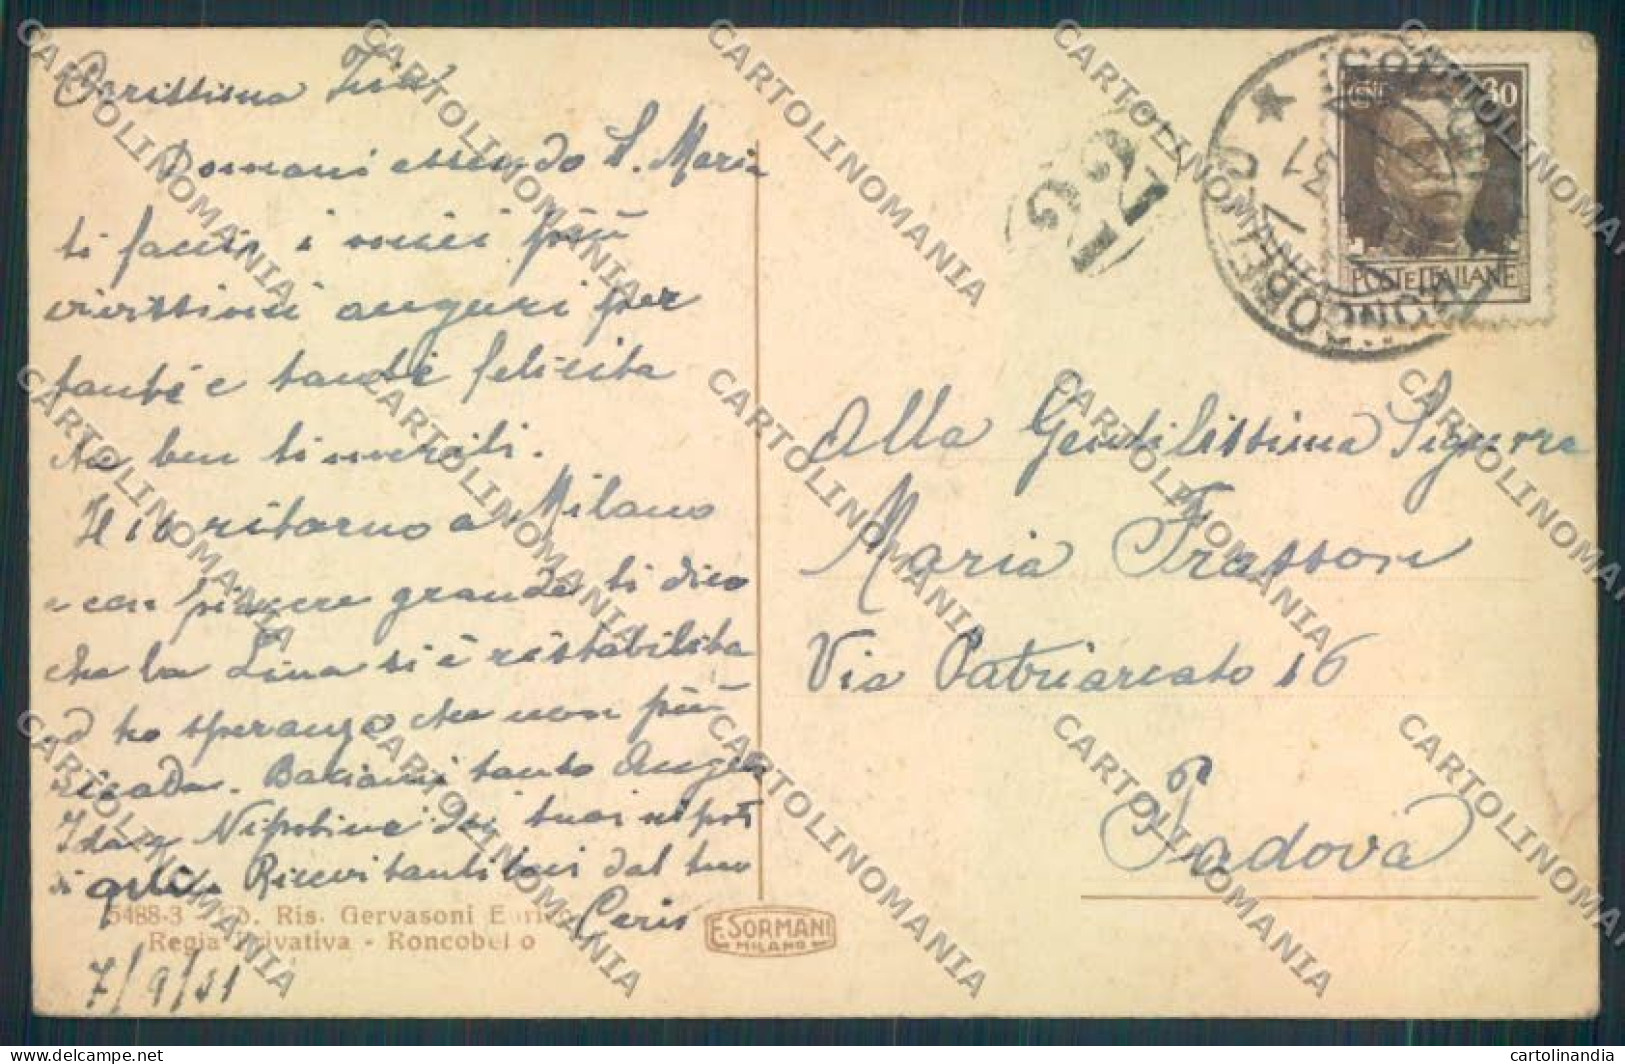 Carissima
Domani essendo S. Maria
ti faccio i miei più
vivissimi auguri per
tanti e tanti felicita
che ben ti meriti.
Il 10 ritorno a Milano
e con piacere grande ti dico
che la Lina si è ristabilita
ed ho speranza che non più
ricada. Baciami tanto
Nipotine dai tuoi nipoti
Ricevi tanti baci dal tuo
Caris
5488-3 Ris. Gervasoni Enrico
Regia Privativa - Roncobello
7/9/31
E. SORMANI
MILANO
26
RONCOBELLO
31
CENT 30
POSTE ITALIANE
Alla Gentilissima Signora
Maria Frasson
Via Patriarcato 16
Padova
CARTOLINOMANIA
https://www.delcampe.net
cartolinandia